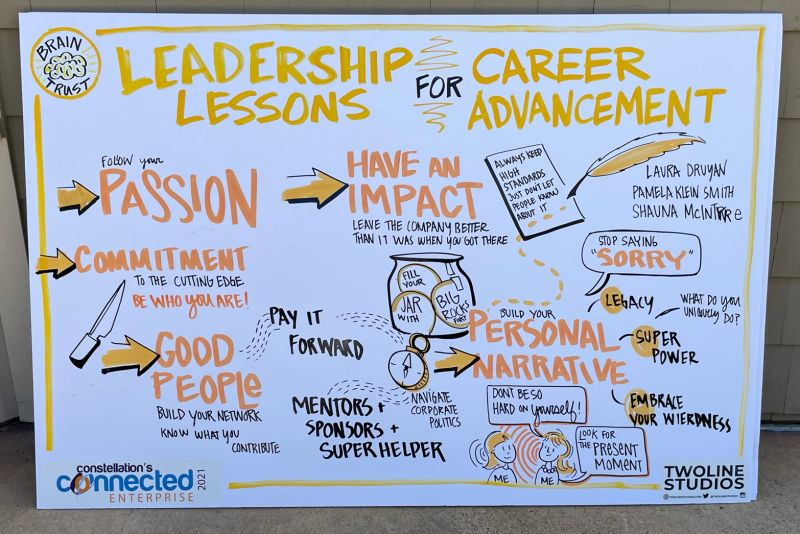 BRAIN
TRUST
LEADERSHIP
LESSONS
FOR
CAREER
ADVANCEMENT
FOLLOW your
PASSION
HAVE AN
IMPACT
LEAVE THE COMPANY BETTER
THAN IT WAS WHEN YOU GOT THERE
ALWAYS KEEP
HIGH
STANDARDS
JUST DON'T LET
PEOPLE KNOW
ABOUT IT
LAURA DRUYAN
PAMELA KLEIN SMITH
SHAUNA McINTYRE
COMMITMENT
TO THE CUTTING EDGE
BE WHO YOU ARE!
FILL
YOUR
JAR
WITH
BIG
ROCKS
FIRST
STOP SAYING
"SORRY"
LEGACY
WHAT DO YOU
UNIQUELY DO?
SUPER
POWER
EMBRACE
YOUR WIERDNESS
BUILD YOUR
PERSONAL
NARRATIVE
GOOD
PEOPLE
BUILD YOUR NETWORK
KNOW WHAT YOU
CONTRIBUTE
PAY IT
FORWARD
MENTORS +
SPONSORS +
SUPER HELPER
NAVIGATE
CORPORATE
POLITICS
DON'T BE SO
HARD ON yourself!
LOOK FOR
THE PRESENT
MOMENT
ME
ME
constellation's
connected
ENTERPRISE
2021
TWOLINE
STUDIOS
TWOLINESTUDIOS.COM @TWOLINESTUDIOS